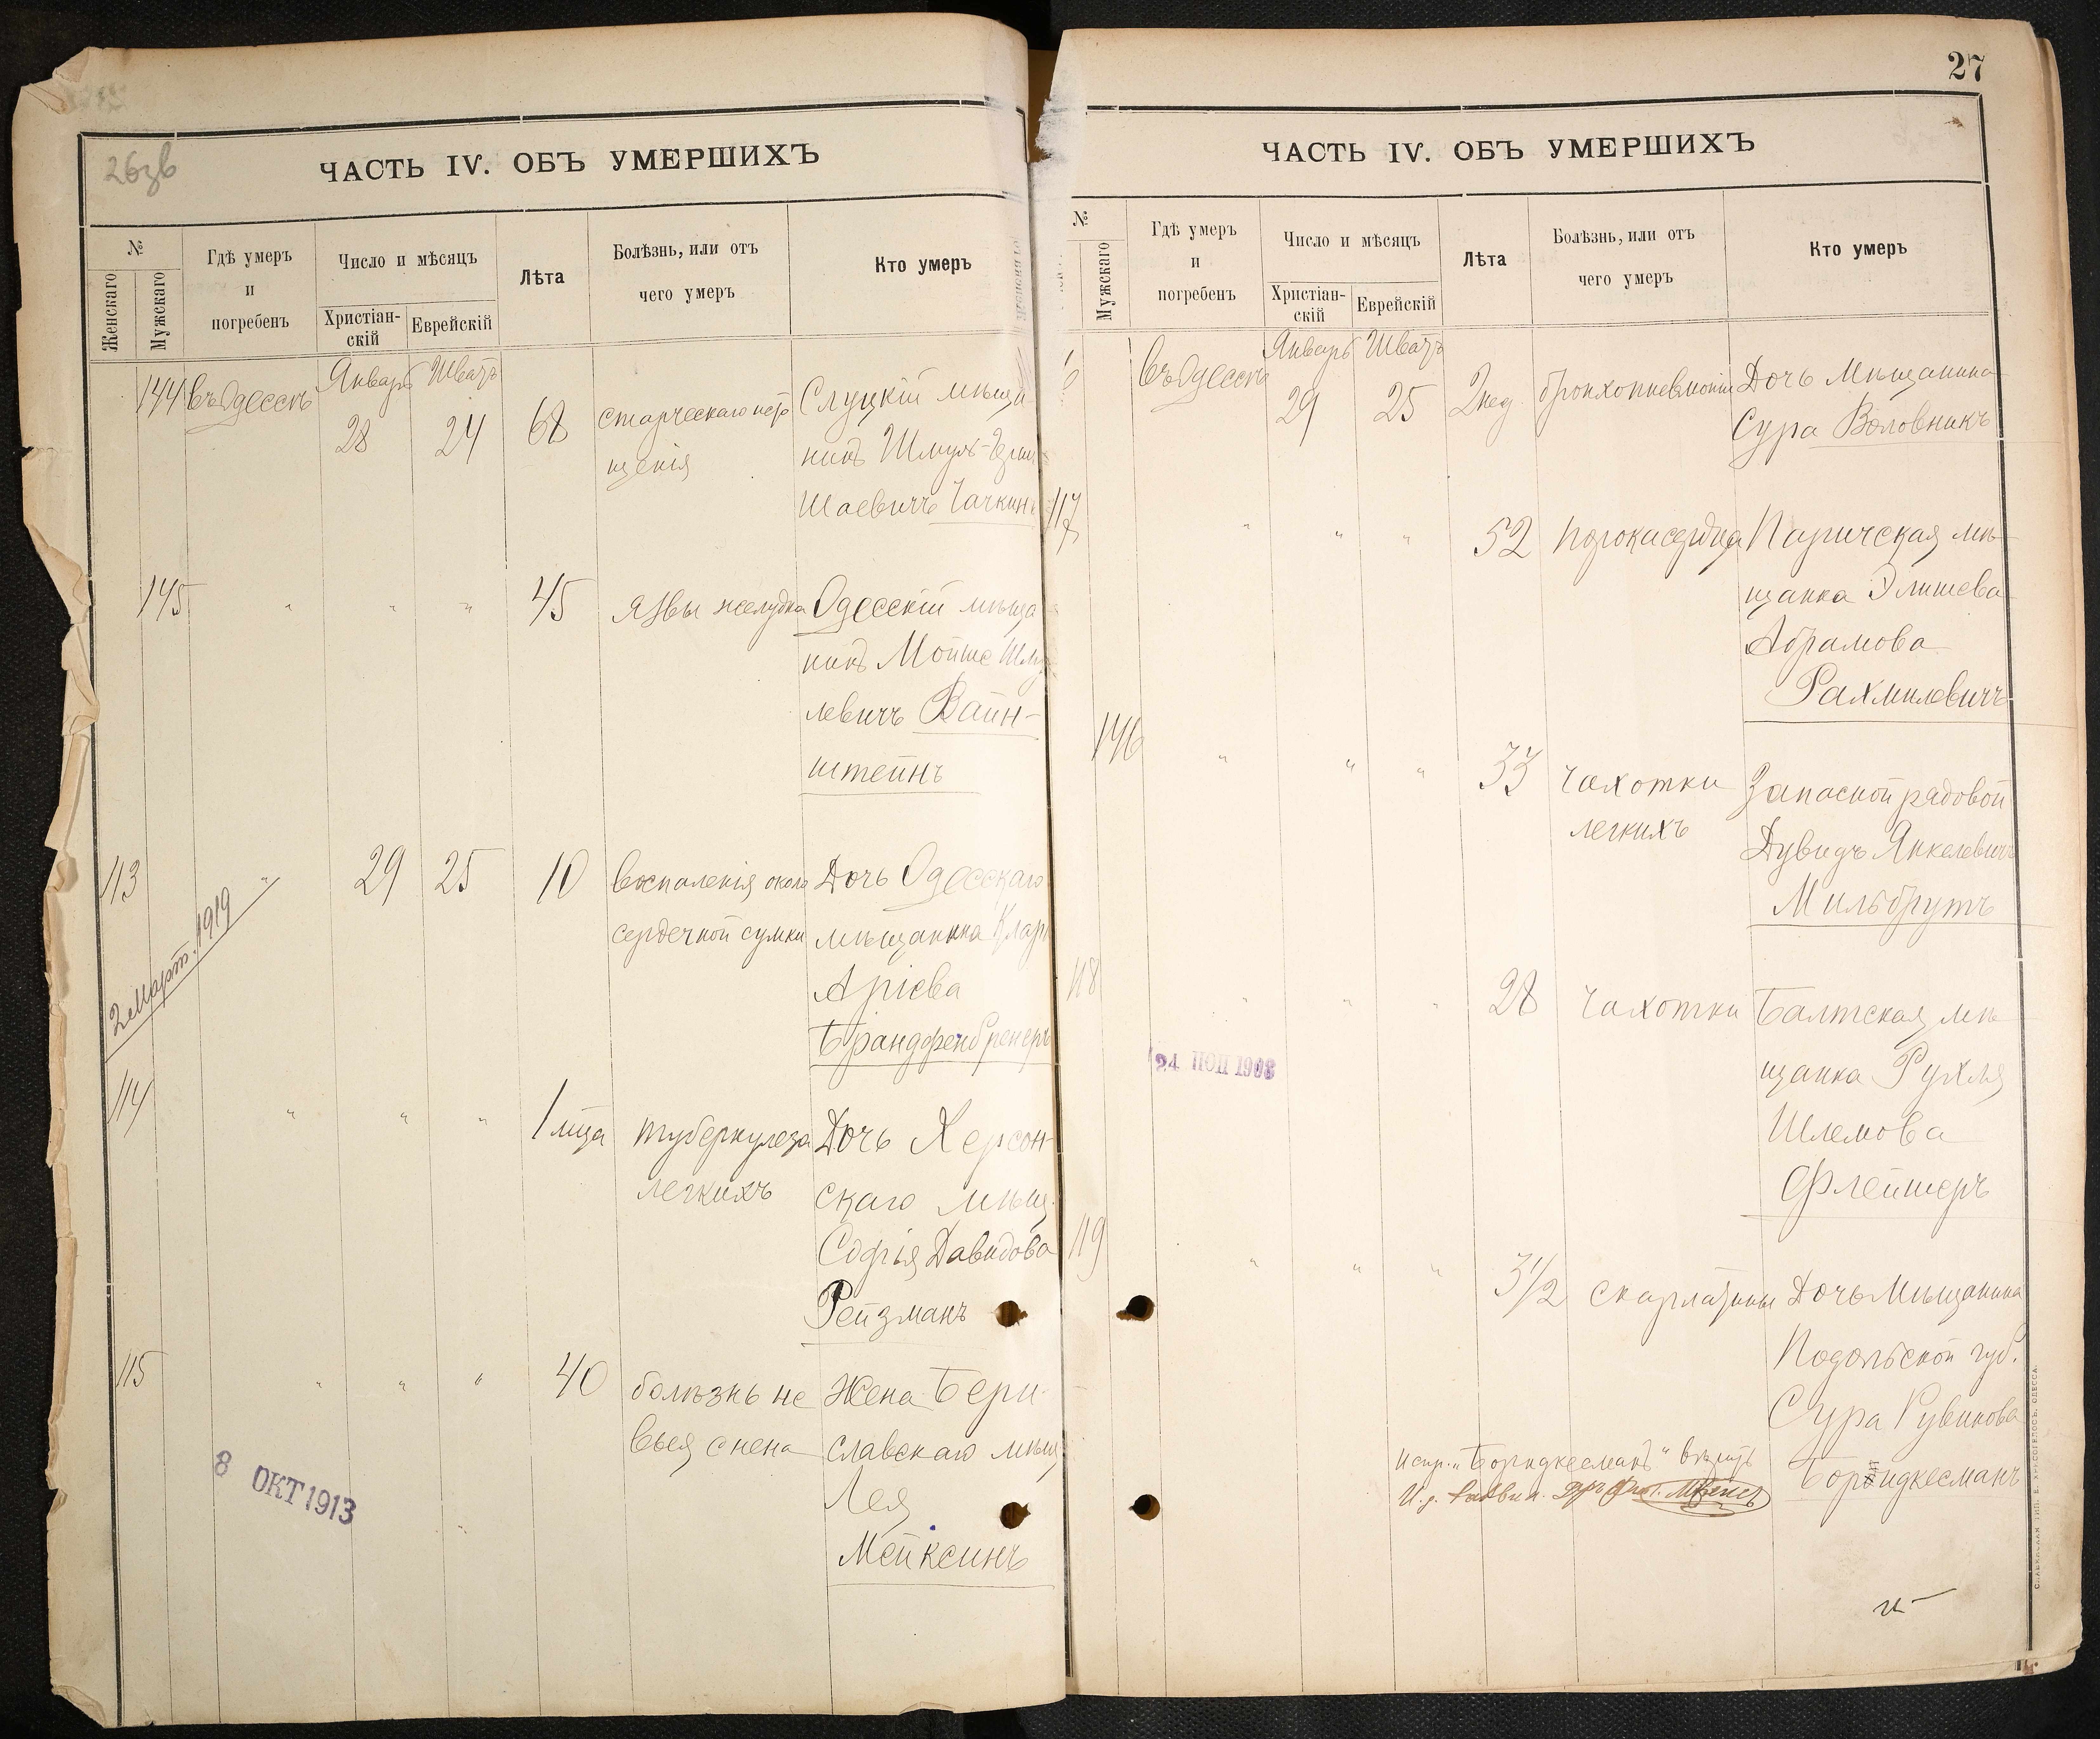 26зв
ЧАСТЬ IV. ОБЪ УМЕРШИХЪ
№
Женскаго
Мужскаго
Гдѣ умеръ
и
погребенъ
Число и мѣсяцъ
Христіан-
скій
Еврейскій
Лѣта
Болѣзнь, или отъ
чего умеръ
Кто умеръ
144
въ Одессѣ
Январь
28
Шватъ
24
68
старческаго исто
щенія
Слуцкій мѣща
нинъ Шмуль-
Шаевичъ Чачкинъ
145
"
"
"
45
язвы желудка
Одесскій мѣща
нинъ Мойше Шму
левичъ Вайн-
штейнъ
113
"
29
25
10
воспаленія около
сердечной сумки
Дочь Одесскаго
мѣщанина Клара
Аріева
Брандфенбренеръ
2 Март. 1919
114
"
"
"
1 мца
туберкулеза
легкихъ
Дочь Херсон-
скаго мѣщ.
Софія Давидова
Рейзманъ
115
"
"
"
40
болѣзнь не
выяснена
Жена Бери-
славскаго мѣщ
Лея
Мейксинъ
8 ОКТ 1913
27
ЧАСТЬ IV. ОБЪ УМЕРШИХЪ
№
Мужскаго
Гдѣ умеръ
и
погребенъ
Число и мѣсяцъ
Христіан-
скій
Еврейскій
Лѣта
Болѣзнь, или отъ
чего умеръ
Кто умеръ
въ Одессѣ
Январь
29
Шватъ
25
2 нед.
бронхопневмоніи
Дочь Мѣщанина
Сура Воловникъ
117
"
"
"
52
порока сердца
Паричская мѣ-
щанка Элишева
Абрамова
Рахмилевичъ
146
"
"
"
33
чахотки
легкихъ
Запасной рядовой
Дувидъ Янкелевичъ
Мильбрутъ
118
"
"
"
28
чахотки
Балтская мѣ
щанка Рухля
Шлемова
Флейшеръ
24 НОЯ 1908
119
"
"
"
3 1/2
скарлатины
Дочь Мѣщанина
Подольской губ.
Сура Рувинова
Боридкесманъ
испр. „Боридкесманъ“ вѣрить
И. д.
СЛАВЯНСКАЯ ТИП. Е. ХРИСОГЕЛОСЪ. ОДЕССА.